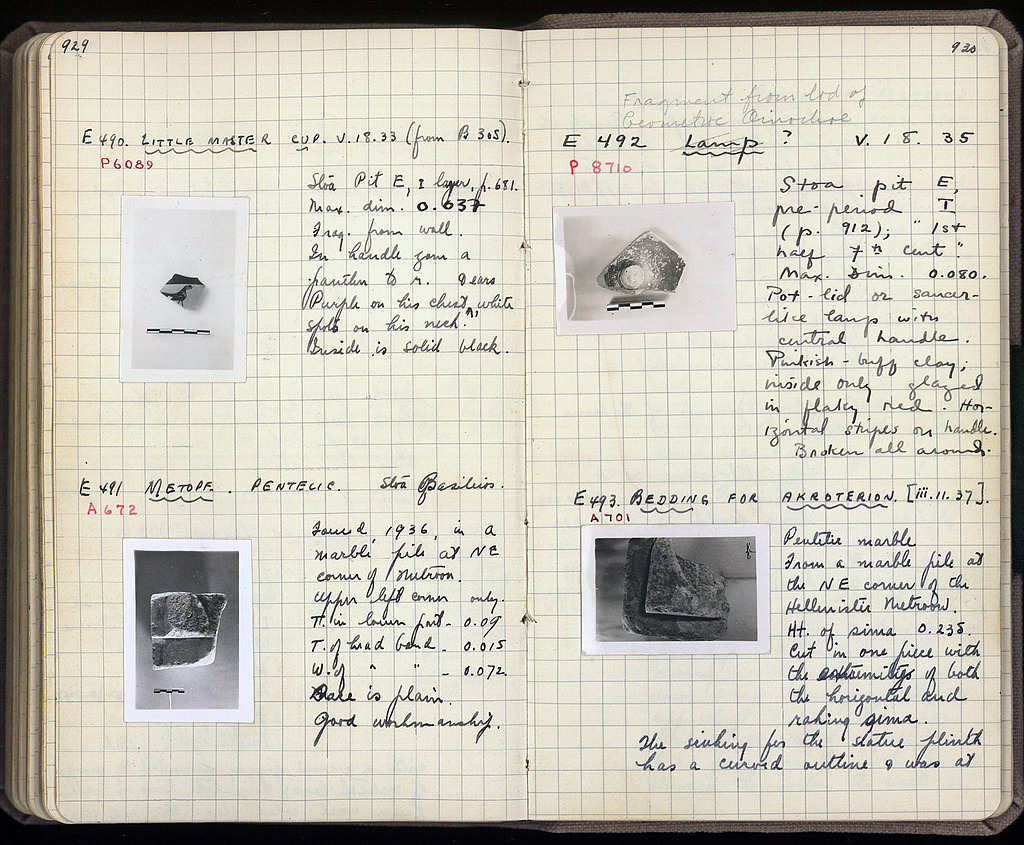 929
E 490. LITTLE MASTER CUP. V.18.33 (from B 305).
P6089
Stoa Pit E, I layer, p. 681.
Max. dim. 0.037
Frag. from wall.
In handle zone a
panther to r. 9 ears
Purple on his chest, white
spots on his neck.
Inside is solid black.
E 491 METOPE. PENTELIC. Stoa Basileios.
A 672
Found, 1936, in a
marble pile at NE
corner of Metroon.
Upper left corner only.
T. in lower part - 0.09
T. of head band - 0.015
W. of " " - 0.072
Face is plain.
Good workmanship.
930
Fragment from lid of
Geometric Oinochoe
E 492 Lamp ? V. 18. 35
P 8710
Stoa pit E,
pre-period I
(p. 912); "1st
half 7th cent".
Max. Dim. 0.080.
Pot-lid or saucer-
like lamp with
central handle.
Pinkish-buff clay;
inside only glazed
in flaky red. Hor-
izontal stripes on handle.
Broken all around.
E 493. BEDDING FOR AKROTERION. [iii.11.37].
A 701
Pentelic marble
From a marble pile at
the NE corner of the
Hellenistic Metroon.
Ht. of sima 0.235.
Cut in one piece with
the extremities of both
the horizontal and
raking sima.
The sinking for the statue plinth
has a curved outline & was at